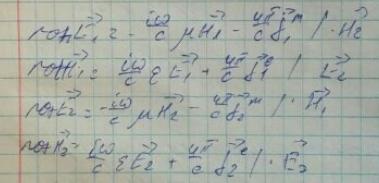 rot E⃗₁ = - iω/c μH⃗₁ - 4π/c j⃗₁ᵐ | · H⃗₂
rot H⃗₁ = iω/c εE⃗₁ + 4π/c j⃗₁ᵉ | E⃗₂
rot E⃗₂ = - iω/c μH⃗₂ - 4π/c j⃗₂ᵐ | · H⃗₁
rot H⃗₂ = iω/c εE⃗₂ + 4π/c j⃗₂ᵉ | ·